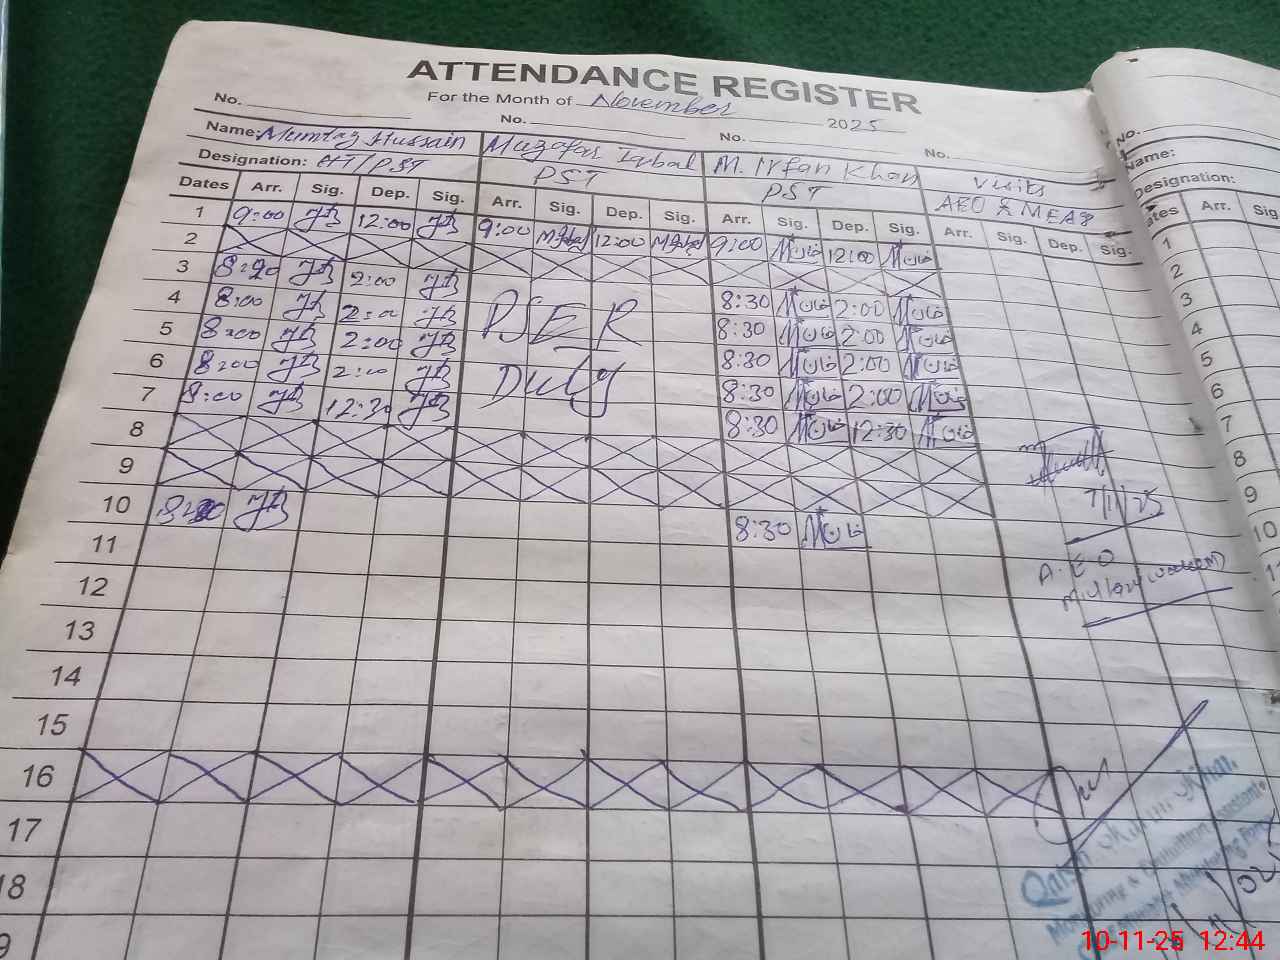 ATTENDANCE REGISTER
For the Month of November 2025
No. No. No. No.
Name: Mumtaz Hussain Muzafar Iqbal M. Irfan Khan Visits
Designation: HT/PST PST PST AEO & MEAs
Dates Arr. Sig. Dep. Sig. Arr. Sig. Dep. Sig. Arr. Sig. Dep. Sig. Arr. Sig. Dep. Sig.
1 9:00 12:00 9:00 M Iqbal 12:00 M Iqbal 9:00 12:00
2
3 8:00 2:00 8:30 2:00
4 8:00 2:00 PSER 8:30 2:00
5 8:00 2:00 8:30 2:00
6 8:00 2:00 Duty 8:30 2:00
7 8:00 12:30 8:30 12:30
8
9
10 8:30
11
12
13
14
15
16
17
18
9
7/11/25
A.E.O
Monitoring & Evaluation Assistant
No.
Name:
Designation:
ates Arr. Sig
1
2
3
4
5
6
7
8
9
10
10-11-25 12:44